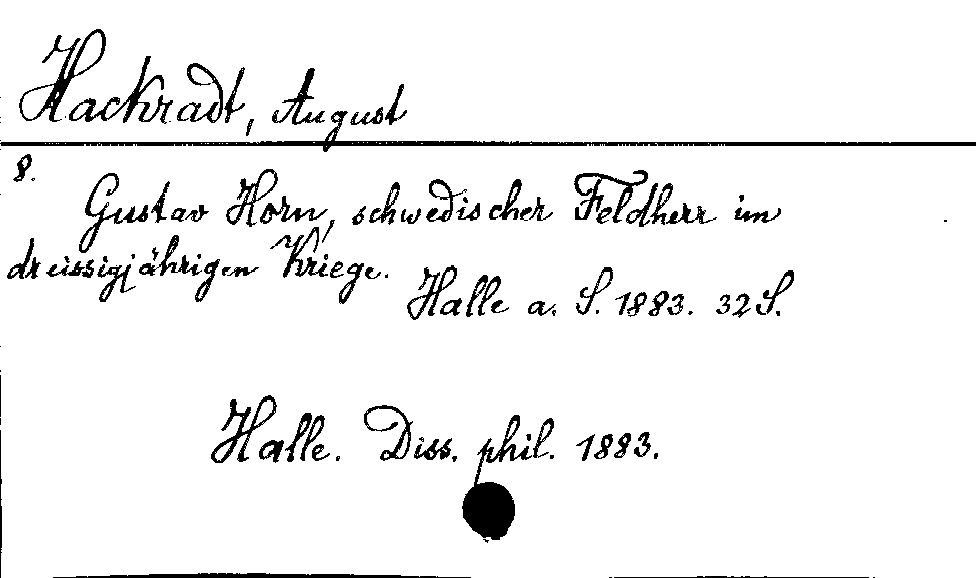 Hackradt, August
8.
Gustav Horn, schwedischer Feldherr im
dreissigjährigen Kriege.
Halle a. S. 1883. 32 S.
Halle. Diss. phil. 1883.